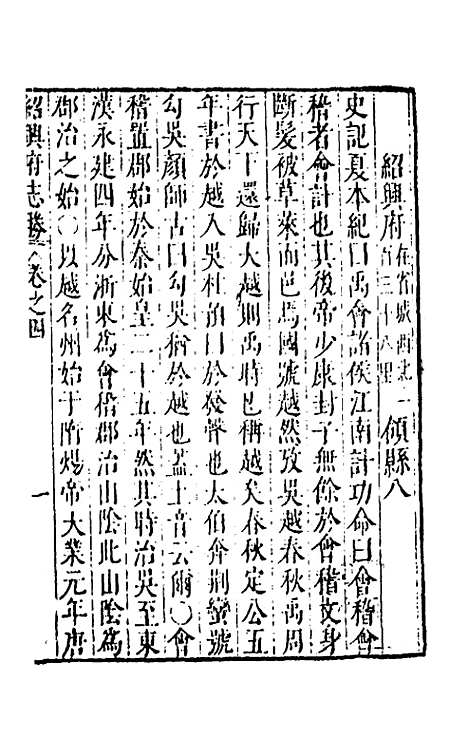 紹興府在省城西北一百三十八里 領縣八
史記夏本紀曰禹會諸侯江南計功命曰會稽會
稽者會計也其後帝少康封子無餘於會稽文身
斷髮被草萊而邑焉國號越然攷吳越春秋禹周
行天下還歸大越則禹時已稱越矣春秋定公五
年書於越入吳杜預曰於發聲也太伯奔荆蠻號
勾吳顔師古曰勾吳猶於越也蓋土音云爾○會
稽置郡始於秦始皇二十五年然其時治吳至東
漢永建四年分浙東爲會稽郡治山陰此山陰爲
郡治之始○以越名州始于隋煬帝大業元年唐
紹興府志勝 卷之四 一